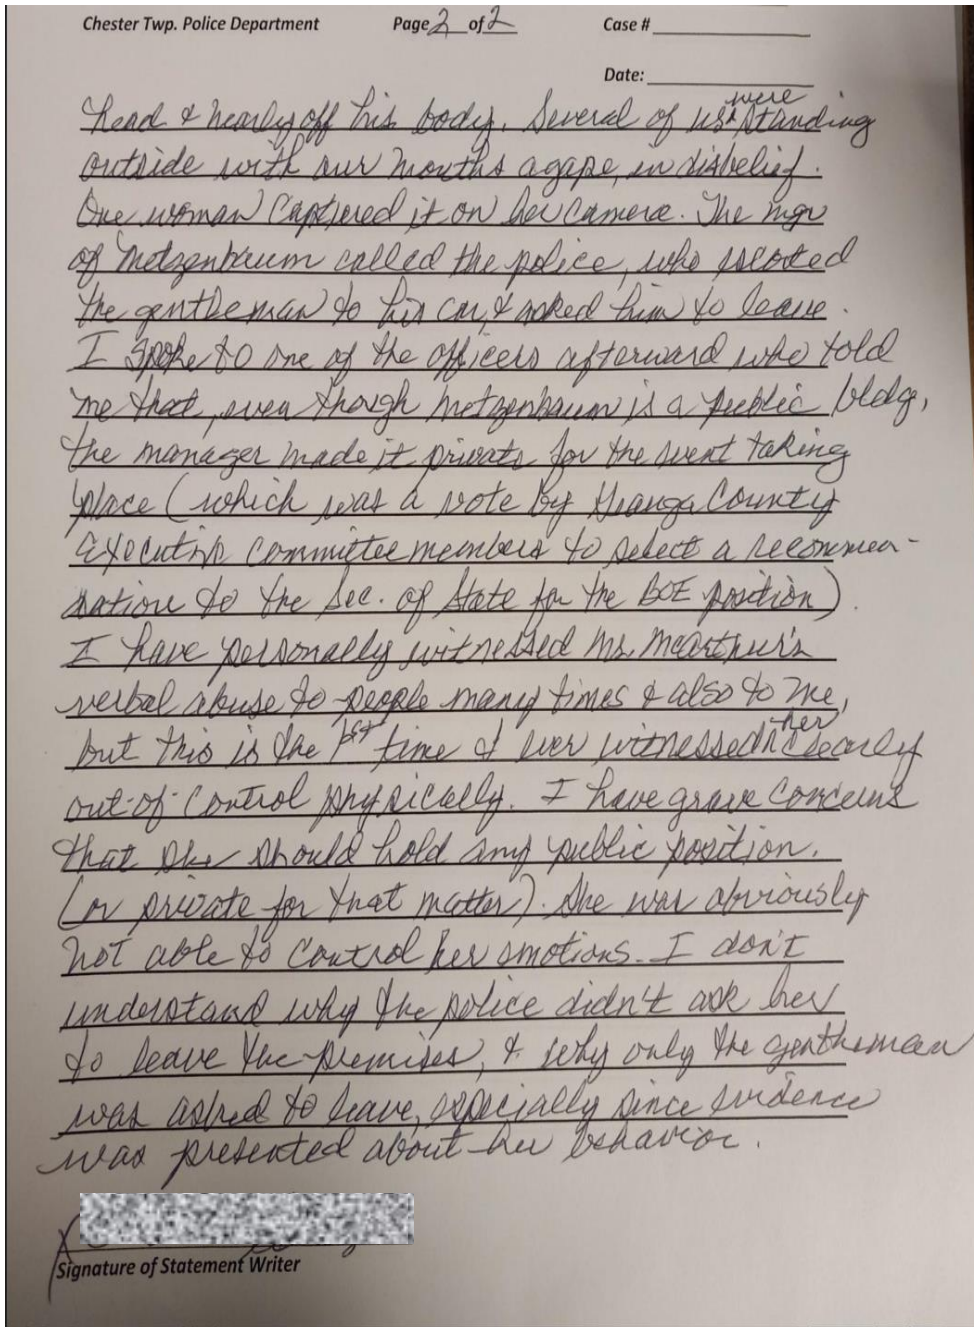 Chester Twp. Police Department Page 2 of 2 Case #
Date:
head & nearly off his body. Several of us were standing
outside with our mouths agape, in disbelief.
One woman captured it on her camera. The mgr
of Metzenbaum called the police, who escorted
the gentleman to his car, & asked him to leave.
I spoke to one of the officers afterward who told
me that, even though Metzenbaum is a public bldg,
the manager made it private for the event taking
place (which was a vote by Geauga County
Executive Committee members to select a recommen-
dation to the Sec. of State for the BOE position).
I have personally witnessed Ms. McArthur's
verbal abuse to people many times & also to me,
but this is the 1st time I ever witnessed her clearly
out-of-control physically. I have grave concerns
that she should hold any public position.
(or private for that matter). She was obviously
not able to control her emotions. I don't
understand why the police didn't ask her
to leave the premises, & why only the gentleman
was asked to leave, especially since evidence
was presented about her behavior.
X
Signature of Statement Writer